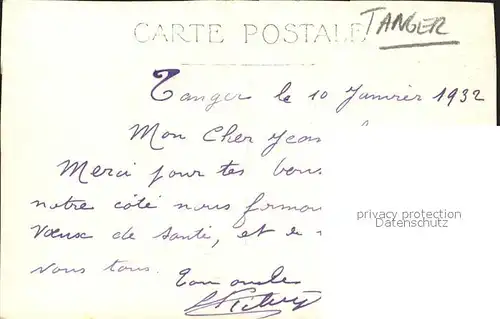 CARTE POSTALE
TANGER
Tanger le 10 Janvier 1932
Mon Cher Jean
Merci pour tes bons
notre côté nous formons
privacy protection
Datenschutz
Vœux de santé, et
vous tous.
Ton oncle